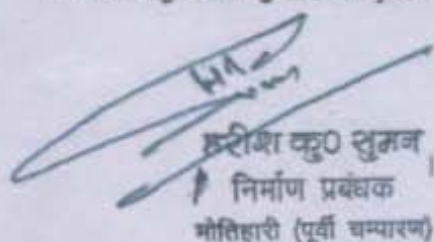 हरीश कु0 सुमन
निर्माण प्रबंधक
मोतिहारी (पूर्वी चम्पारण)